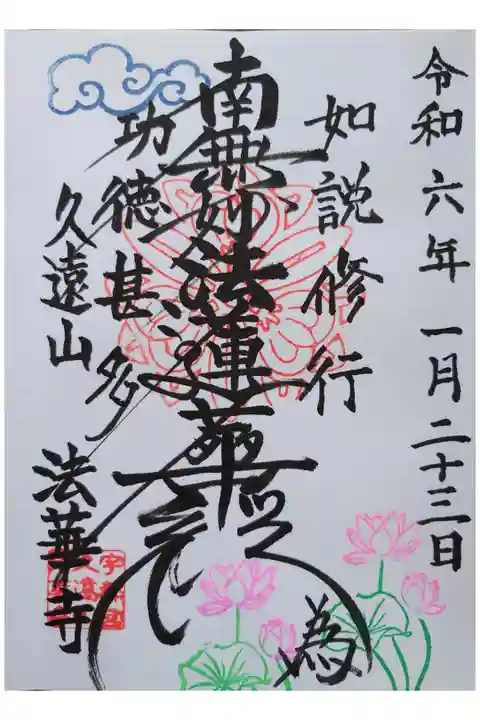 令和六年一月二十三日
如説修行
南無妙法蓮華経
功徳甚多
為
久遠山
法華寺